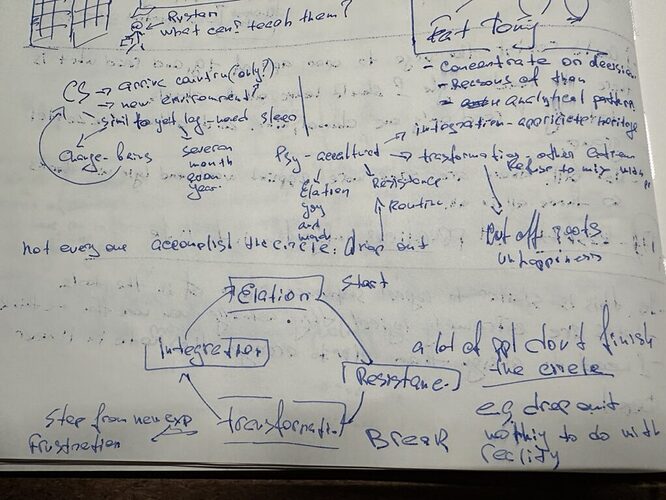 Rystan
what can i teach them?
Eat Tony
- Concentrate on decision
- Reasons of than
- Analytical pattern
CS → arrive country (only?)
→ new environment?
→ simil to yet lag - need sleep
change - being
several
month
even
year
→ integration - appriciete heritage
Psy - accultured → trasformation, other extrem
Refuse to mix with
Elation
joy
and
Resistance
Routine
Cut off roots
unhappiness
not every one accomplish the circle: drop out
Elation
Start
Integration
Resistance
transformation
Break
Step from new exp
frustration
a lot of ppl don't finish
the circle
e.g drop out
nothing to do with
reality